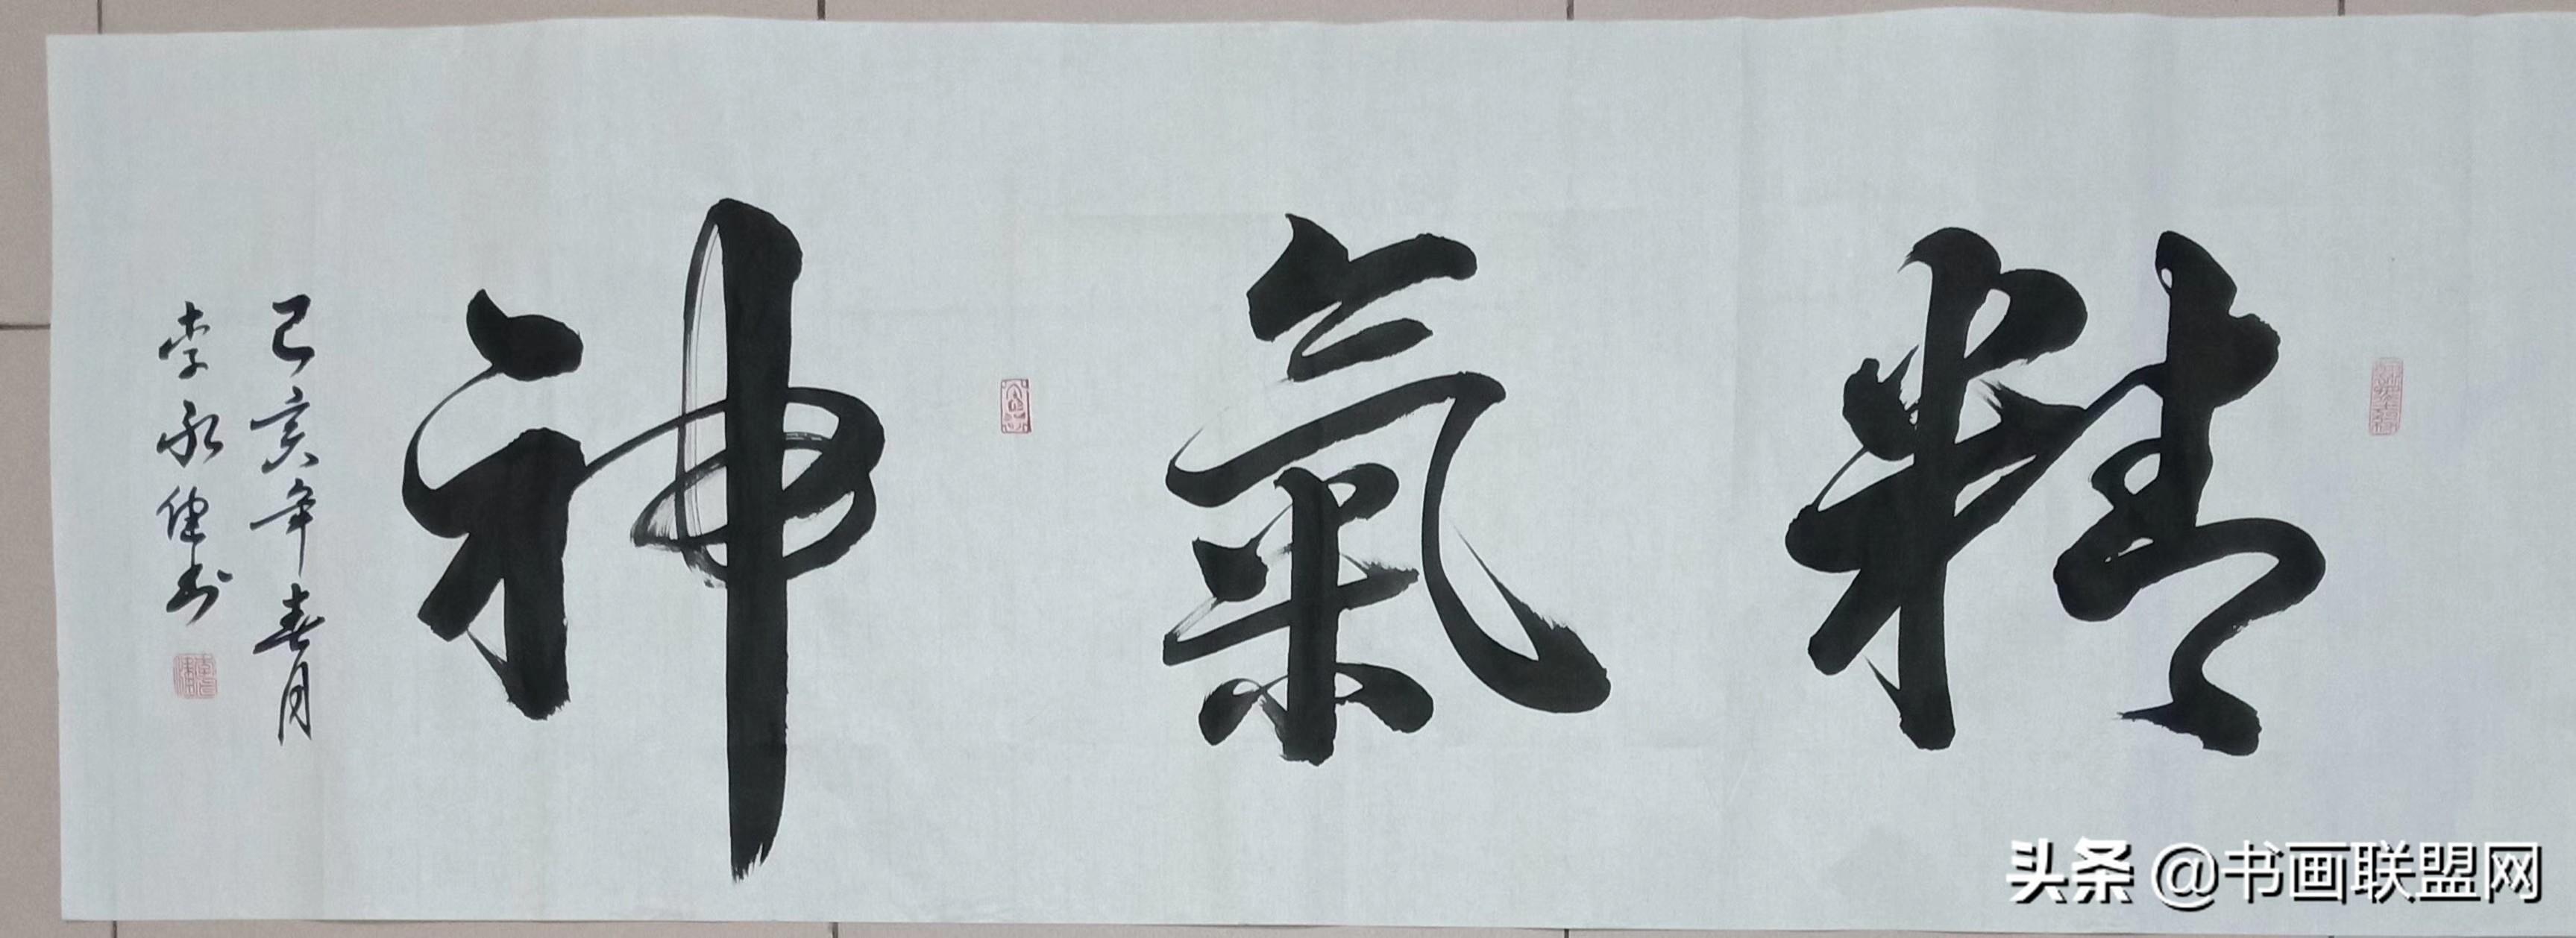 精氣神
己亥年春月
李永健书
头条 @书画联盟网